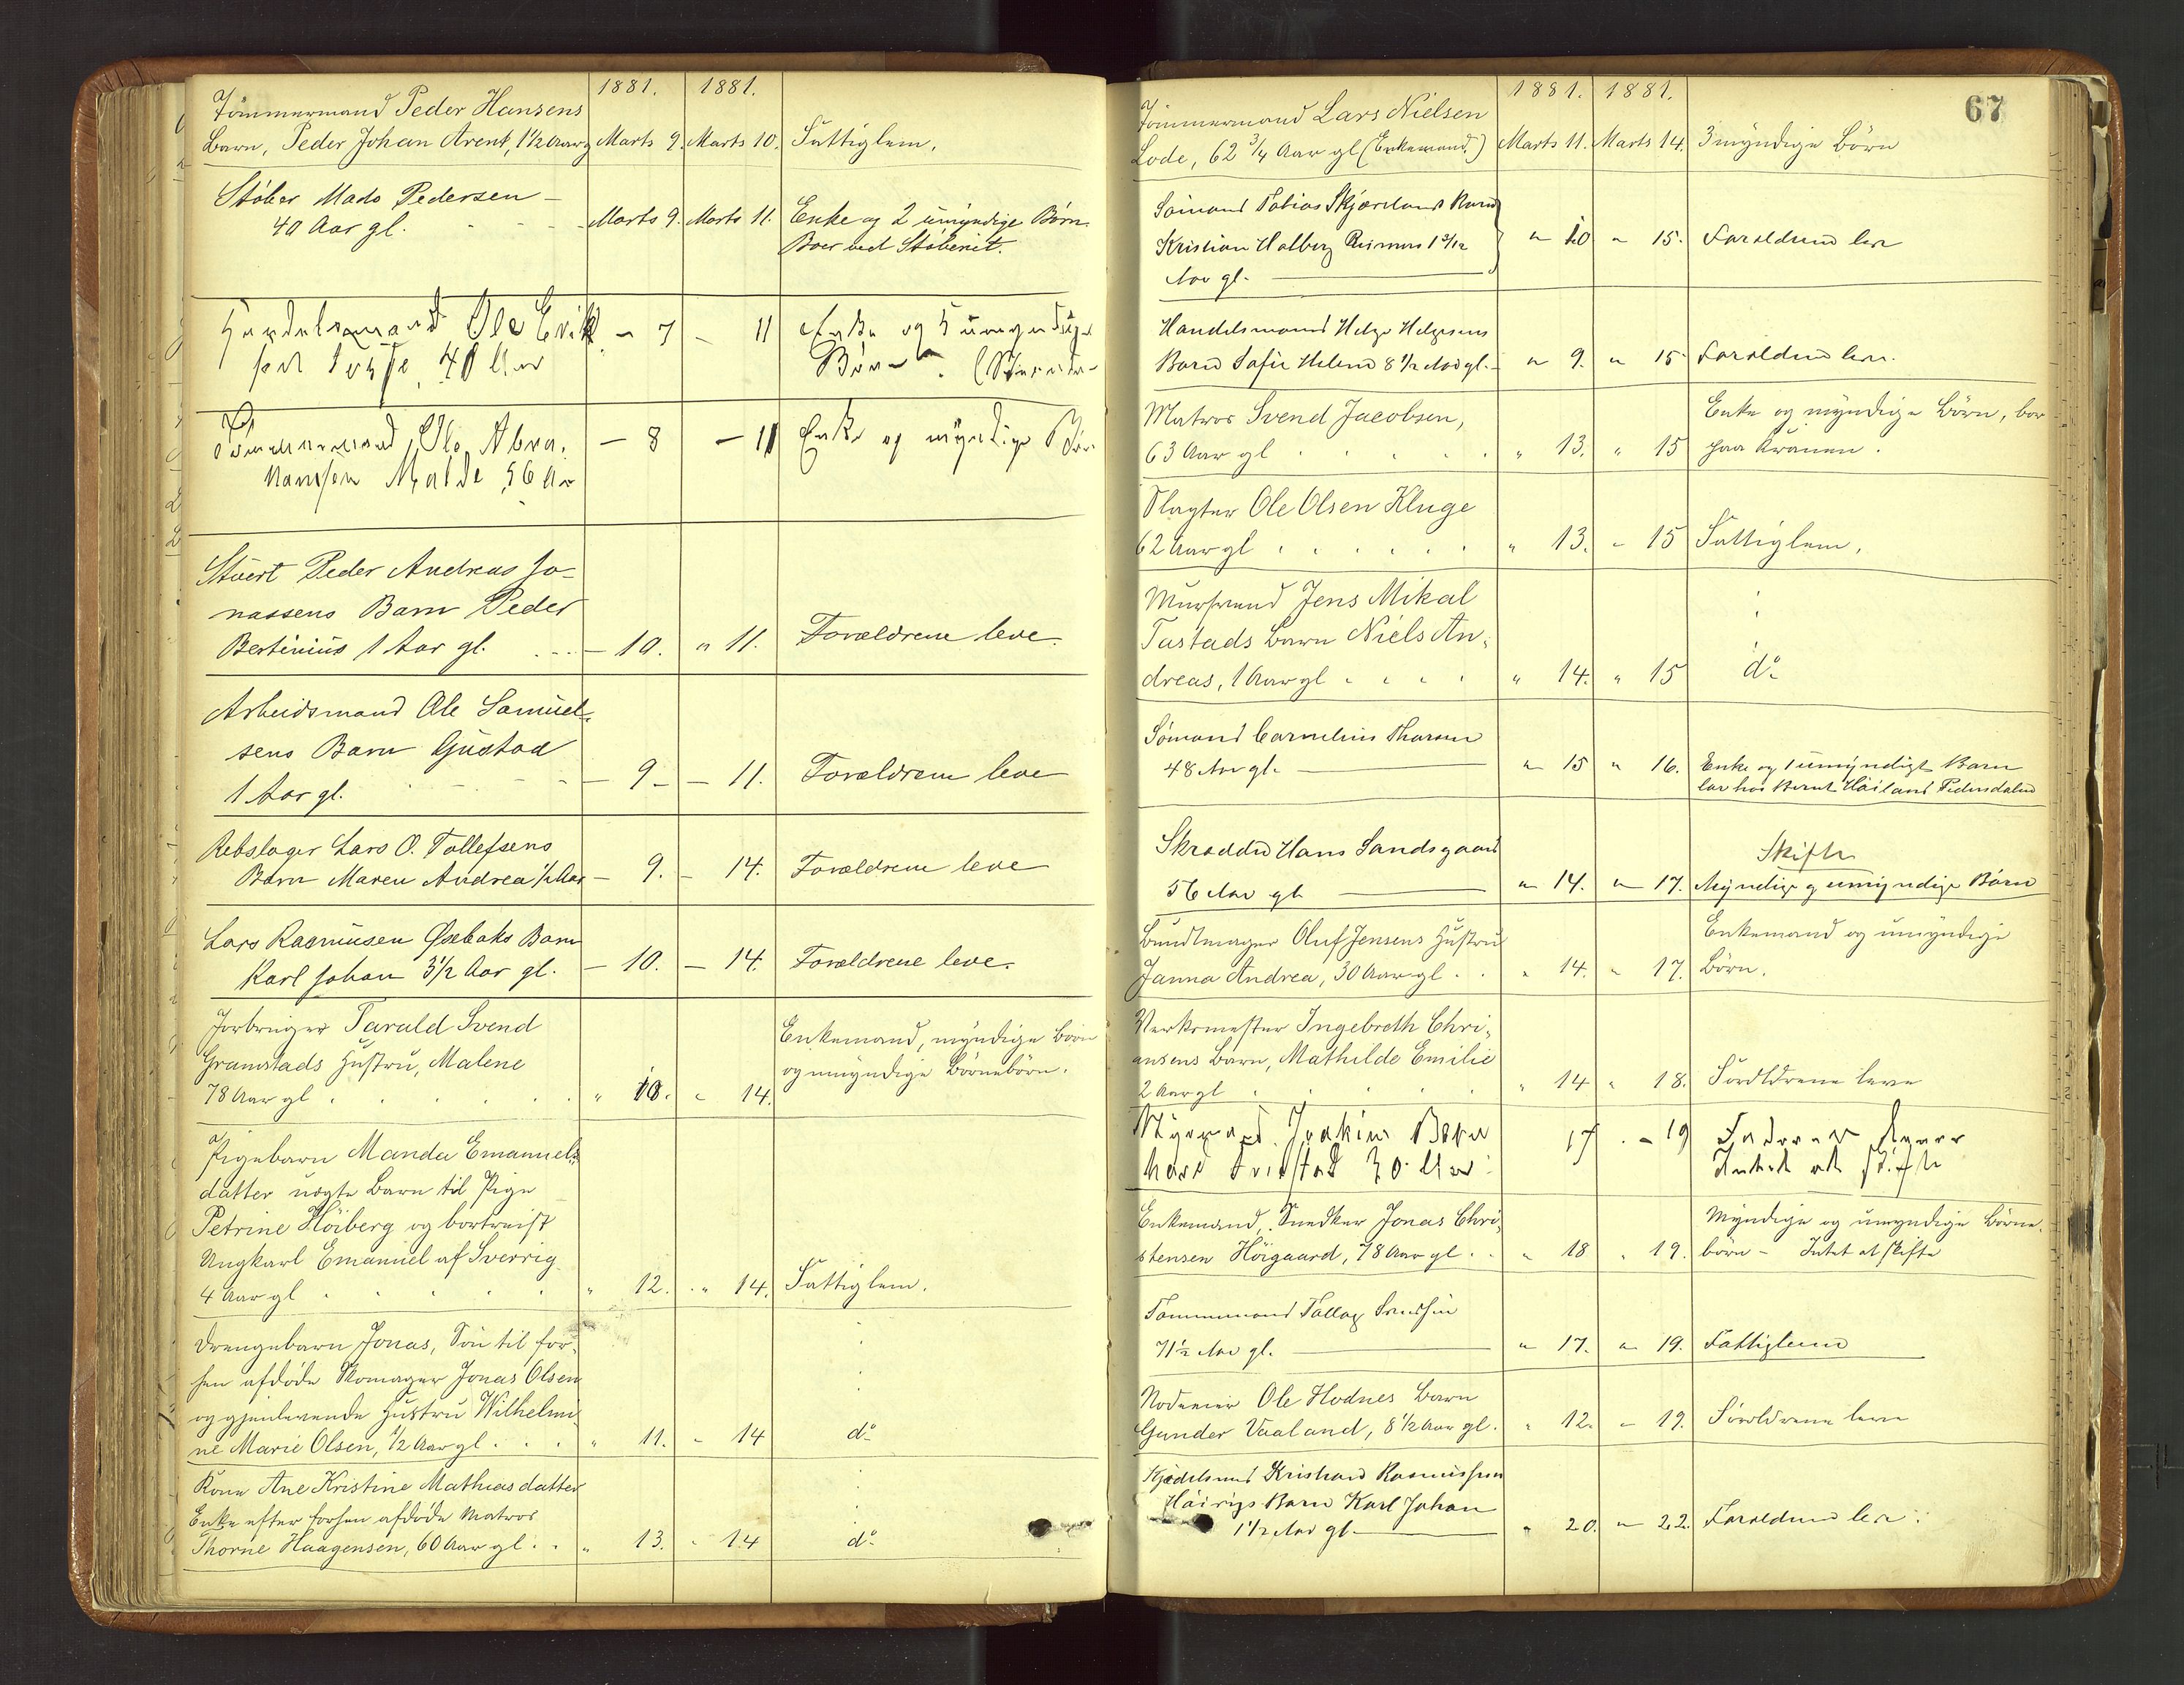 1881. 1881.
Tömmermand Peder Hansens
Barn, Peder Johan Arent, 1 1/2 Aar g Marts 9. Marts 10. Fattiglem.
Stöber Mads Pedersen –
40 Aar gl. Marts 9. Marts 11. Enke og 2 umyndige Børn.
Boer ved Stöberiet.
Handelsmand Ole Erik
sen 40 Aar – 7 – 11 Enke og 5 umyndige
Börn
Tömmermand Ole Abra-
hamsen Malde 56 Aar – 8 – 11 Enke og myndige Bör
Stuert Peder Andreas Jo-
nassens Barn Peder
Bertinius 1 Aar gl. – 10. " 11. Forældrene leve.
Arbeidsmand Ole Samuel-
sens Barn Gustav
1 Aar gl. – 9 – – 11. Forældrene leve
Rebslager Lars O. Tollefsens
Barn Maren Andrea 1/2 Aar – 9. – 14. Forældrene leve
Lars Rasmusen Øsebaks Barn
Karl Johan 3 1/2 Aar gl. – 10. – 14. Forældrene leve.
Jorbruger Tarald Svend
Gramstads Hustru, Malene
78 Aar gl " 10. " 14. Enkemand, myndige Börn
og umyndige Börnebörn.
Pigebarn Manda Emanuels-
datter uægte Barn til Pige
Petrine Höiberg og bortreist
Ungkarl Emanuel af Sverrig
4 Aar gl " 12. " 14. Fattiglem.
Drengebarn Jonas, Sön til for-
hen afdöde Skomager Jonas Olsen
og gjenlevende Hustru Wilhelmi-
ne Marie Olsen, 1/2 Aar gl. " 11. " 14 do
Kone Ane Kristine Mathiasdatter
Enke efter forhen afdöde Matros
Thorne Haagensen, 60 Aar gl. " 13. " 14 do
67
1881. 1881.
Tömmermand Lars Nielsen
Lode, 62 3/4 Aar gl (Enkemand.) Marts 11. Marts 14. 3 myndige Börn
Sömand Tobias Skjævelands Barn
Kristian Halberg Rasmus 1 3/12
Aar gl. – " 10 " 15. Forældrene leve
Handelsmand Helge Helgesens
Barn Sofie Helene 8 1/2 Aar gl. – " 9. " 15 Forældrene leve.
Matros Svend Jacobsen,
63 Aar gl " 13. " 15 Enke og myndige Börn, bor
paa Kranen.
Slagter Ole Olsen Kluge
62 Aar gl " 13. " 15 Fattiglem.
Murmand Jens Mikal
Tastads Barn Niels An-
dreas, 1 Aar gl " 14. " 15 do
Sömand Cornelius Thorsen
48 Aar gl. – " 15 " 16. Enke og 1 umyndigt Barn
bor hos Bernt Höiland Pedersdalen
Skrædder Hans Sandsgaard
56 Aar gl. – " 14. " 17. Skifte
Myndige g umyndige Börn
Bundtmager Oluf Jensens Hustru
Janna Andrea, 30 Aar gl. " 14. " 17. Enkemand og umyndige
Börn.
Verksmester Ingebreth Chri-
ansens Barn, Mathilde Emilie
2 Aar gl " 14 " 18. Forældrene leve
Joakim Bern
hard 30 Aar 17 – 19
Intet at skifte
Enkemand, Snedker Jonas Chri-
stensen Höigaard, 78 Aar gl. " 18 " 19. Myndige og umyndige Börne-
börn – Intet at skifte
Tømmermand Tollag
71 1/2 Aar gl. – " 17. " 19. Fattiglem
Ole Hodnes Barn
Gunder Vaaland, 8 1/2 Aar gl. " 12. – 19. Forældrene leve
Kristian Rasmussen
Höivigs Barn Karl Johan
1 1/2 Aar gl. – " 20. – 22. Forældrene leve.